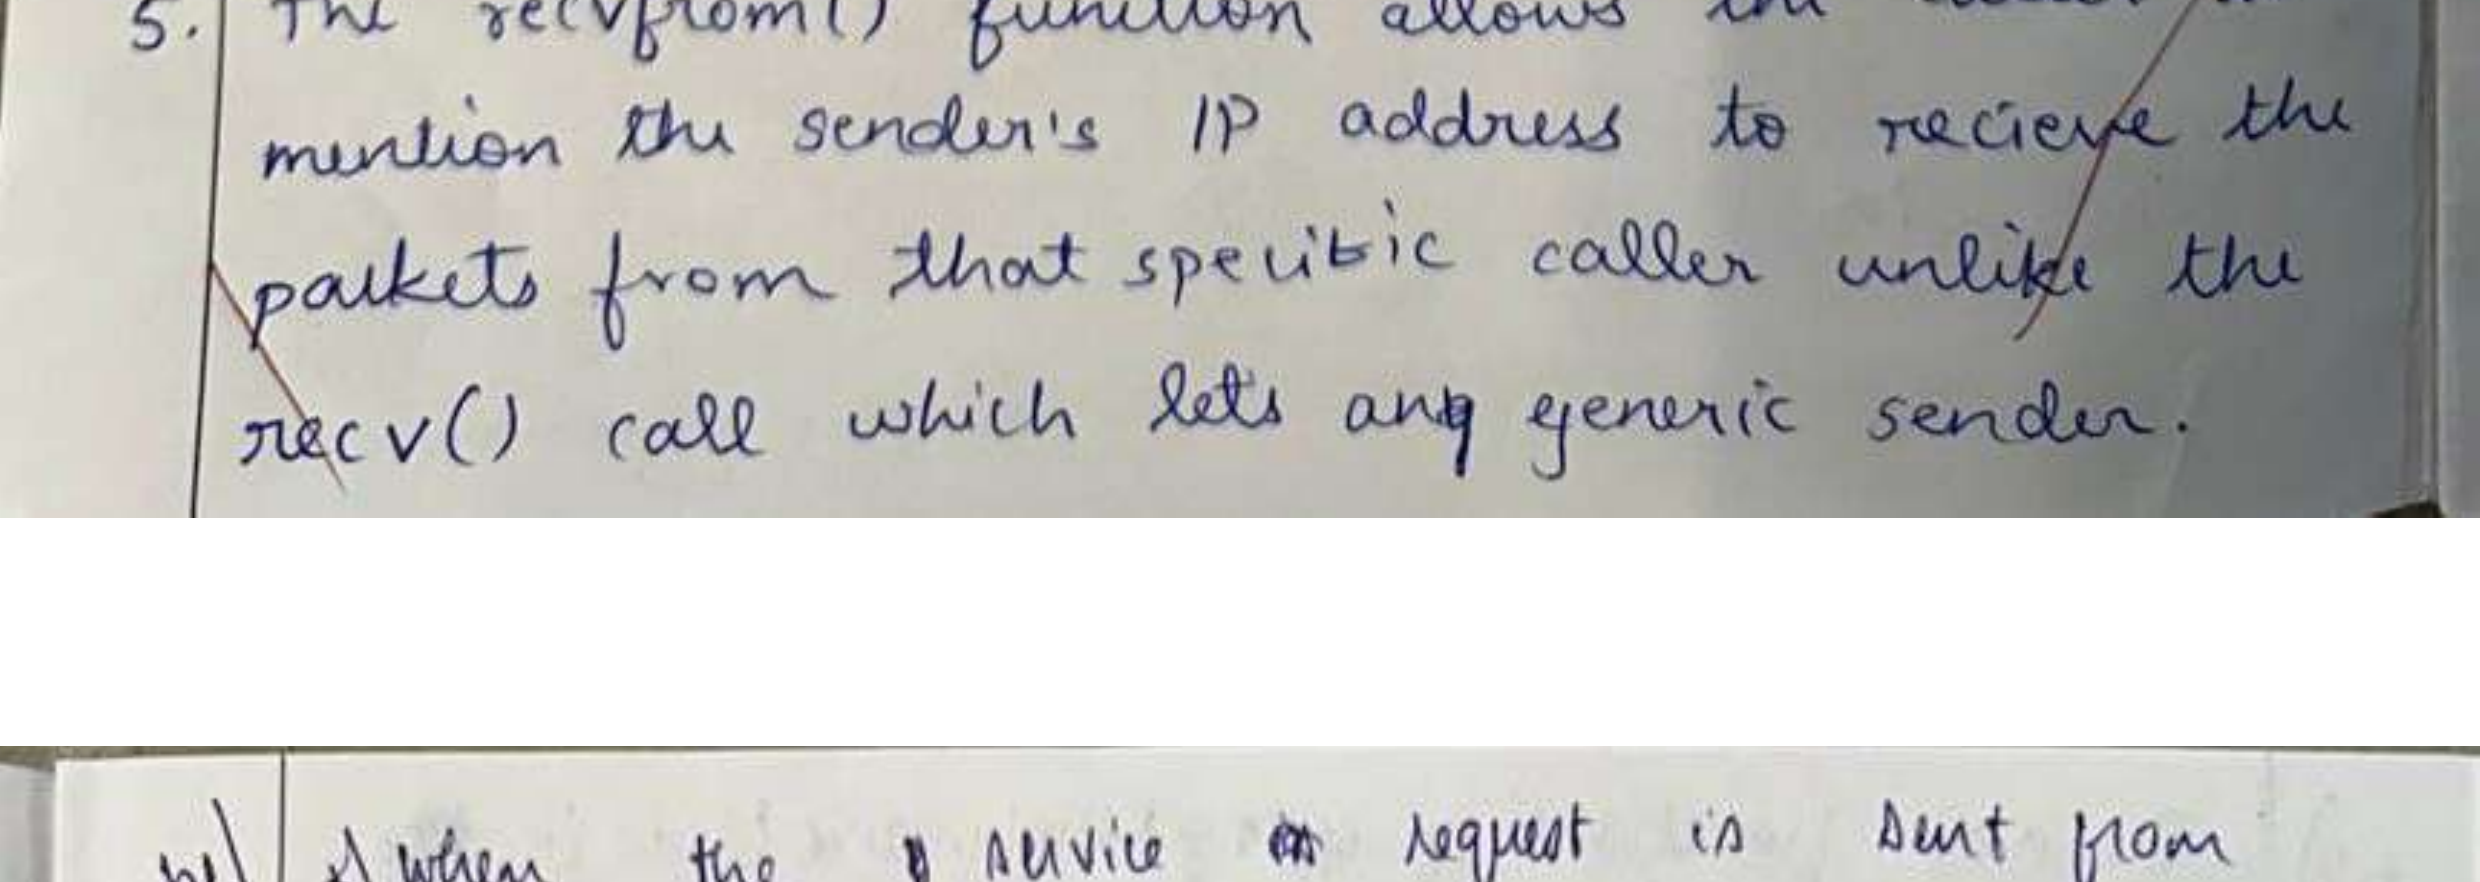 5. The recvfrom() function allows the
mention the sender's IP address to recieve the
packets from that specific caller unlike the
recv() call which lets any generic sender.
when the service request is sent from